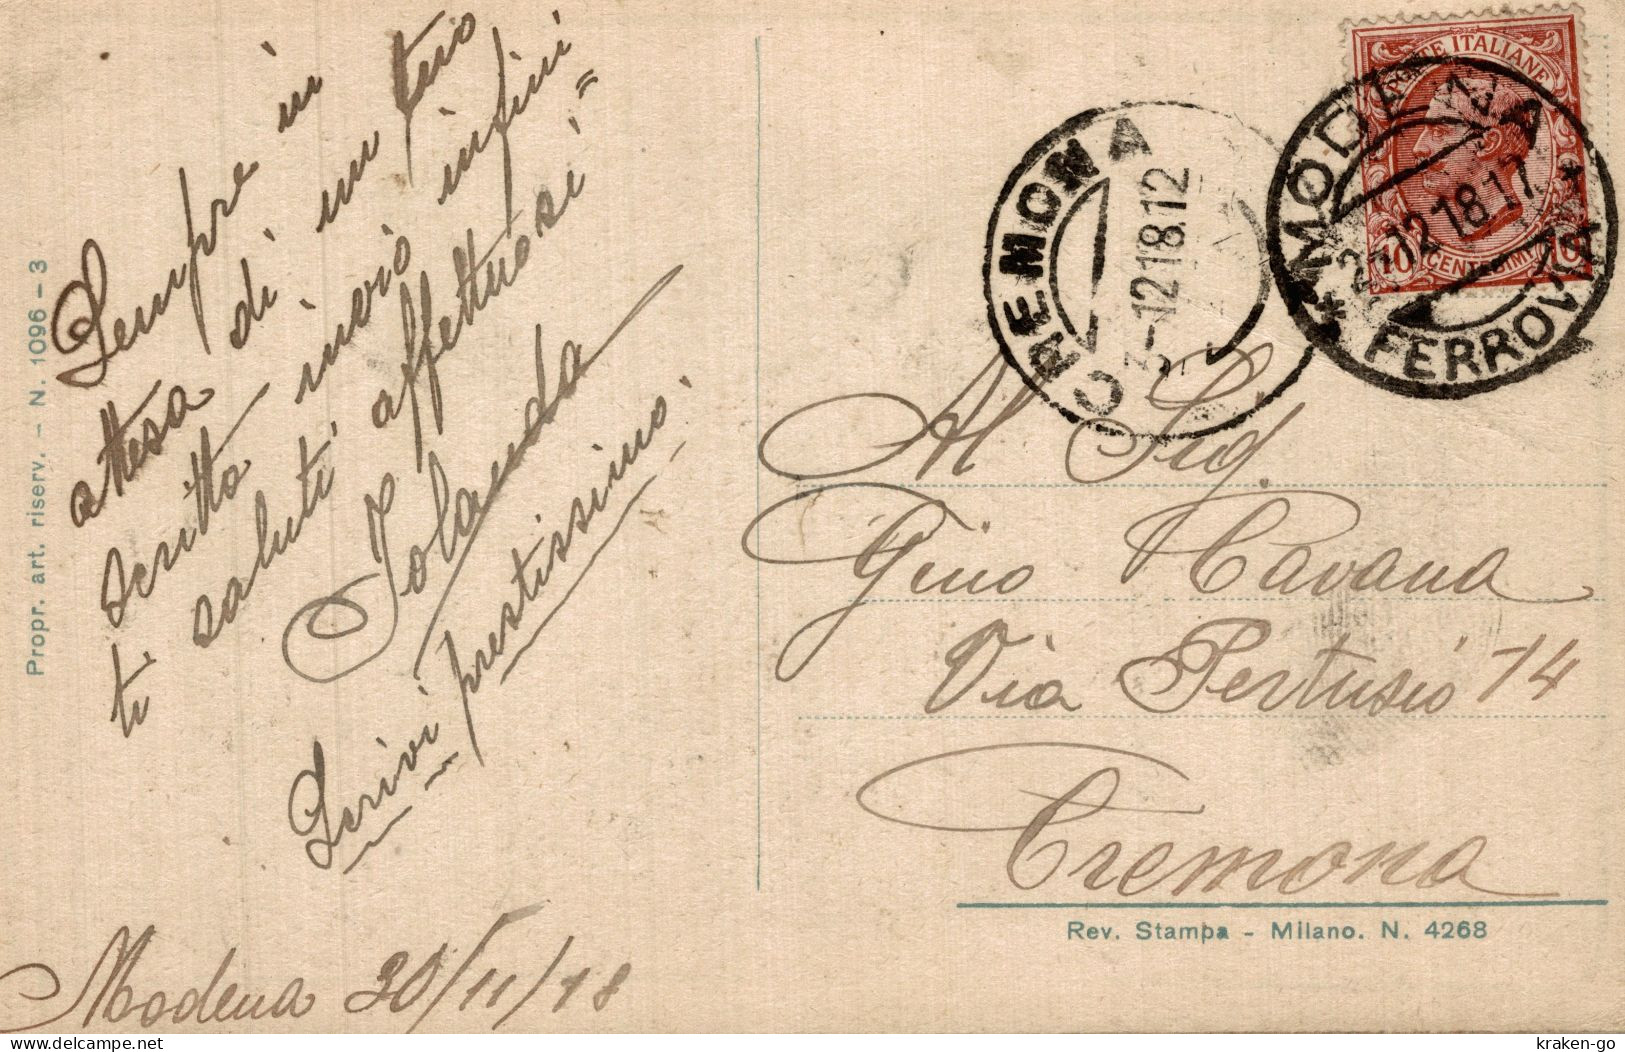 Sempre in
attesa di un tuo
scritto invio infini=
ti saluti affettuosi
Iolanda
Scrivi prestissimo.
Modena 30/11/18
Propr. art. riserv. - N. 1096 - 3
POSTE ITALIANE
10 CENTESIMI 10
CREMONA
3-12 18.12
MODENA
* FERROVIA *
12 18 17
Al Sig.
Gino Cavana
Via Pertusio 14
Cremona
Rev. Stampa - Milano. N. 4268
delcampe.net
kraken-go